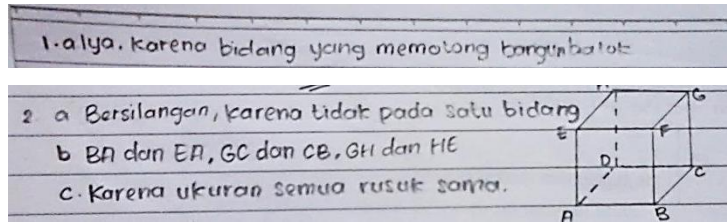 1. alya. Karena bidang yang memotong bangun balok
2 a Bersilangan, karena tidak pada satu bidang
b BA dan EA, GC dan CB, GH dan HE
c. Karena ukuran semua rusuk sama.
H G
E F
D C
A B